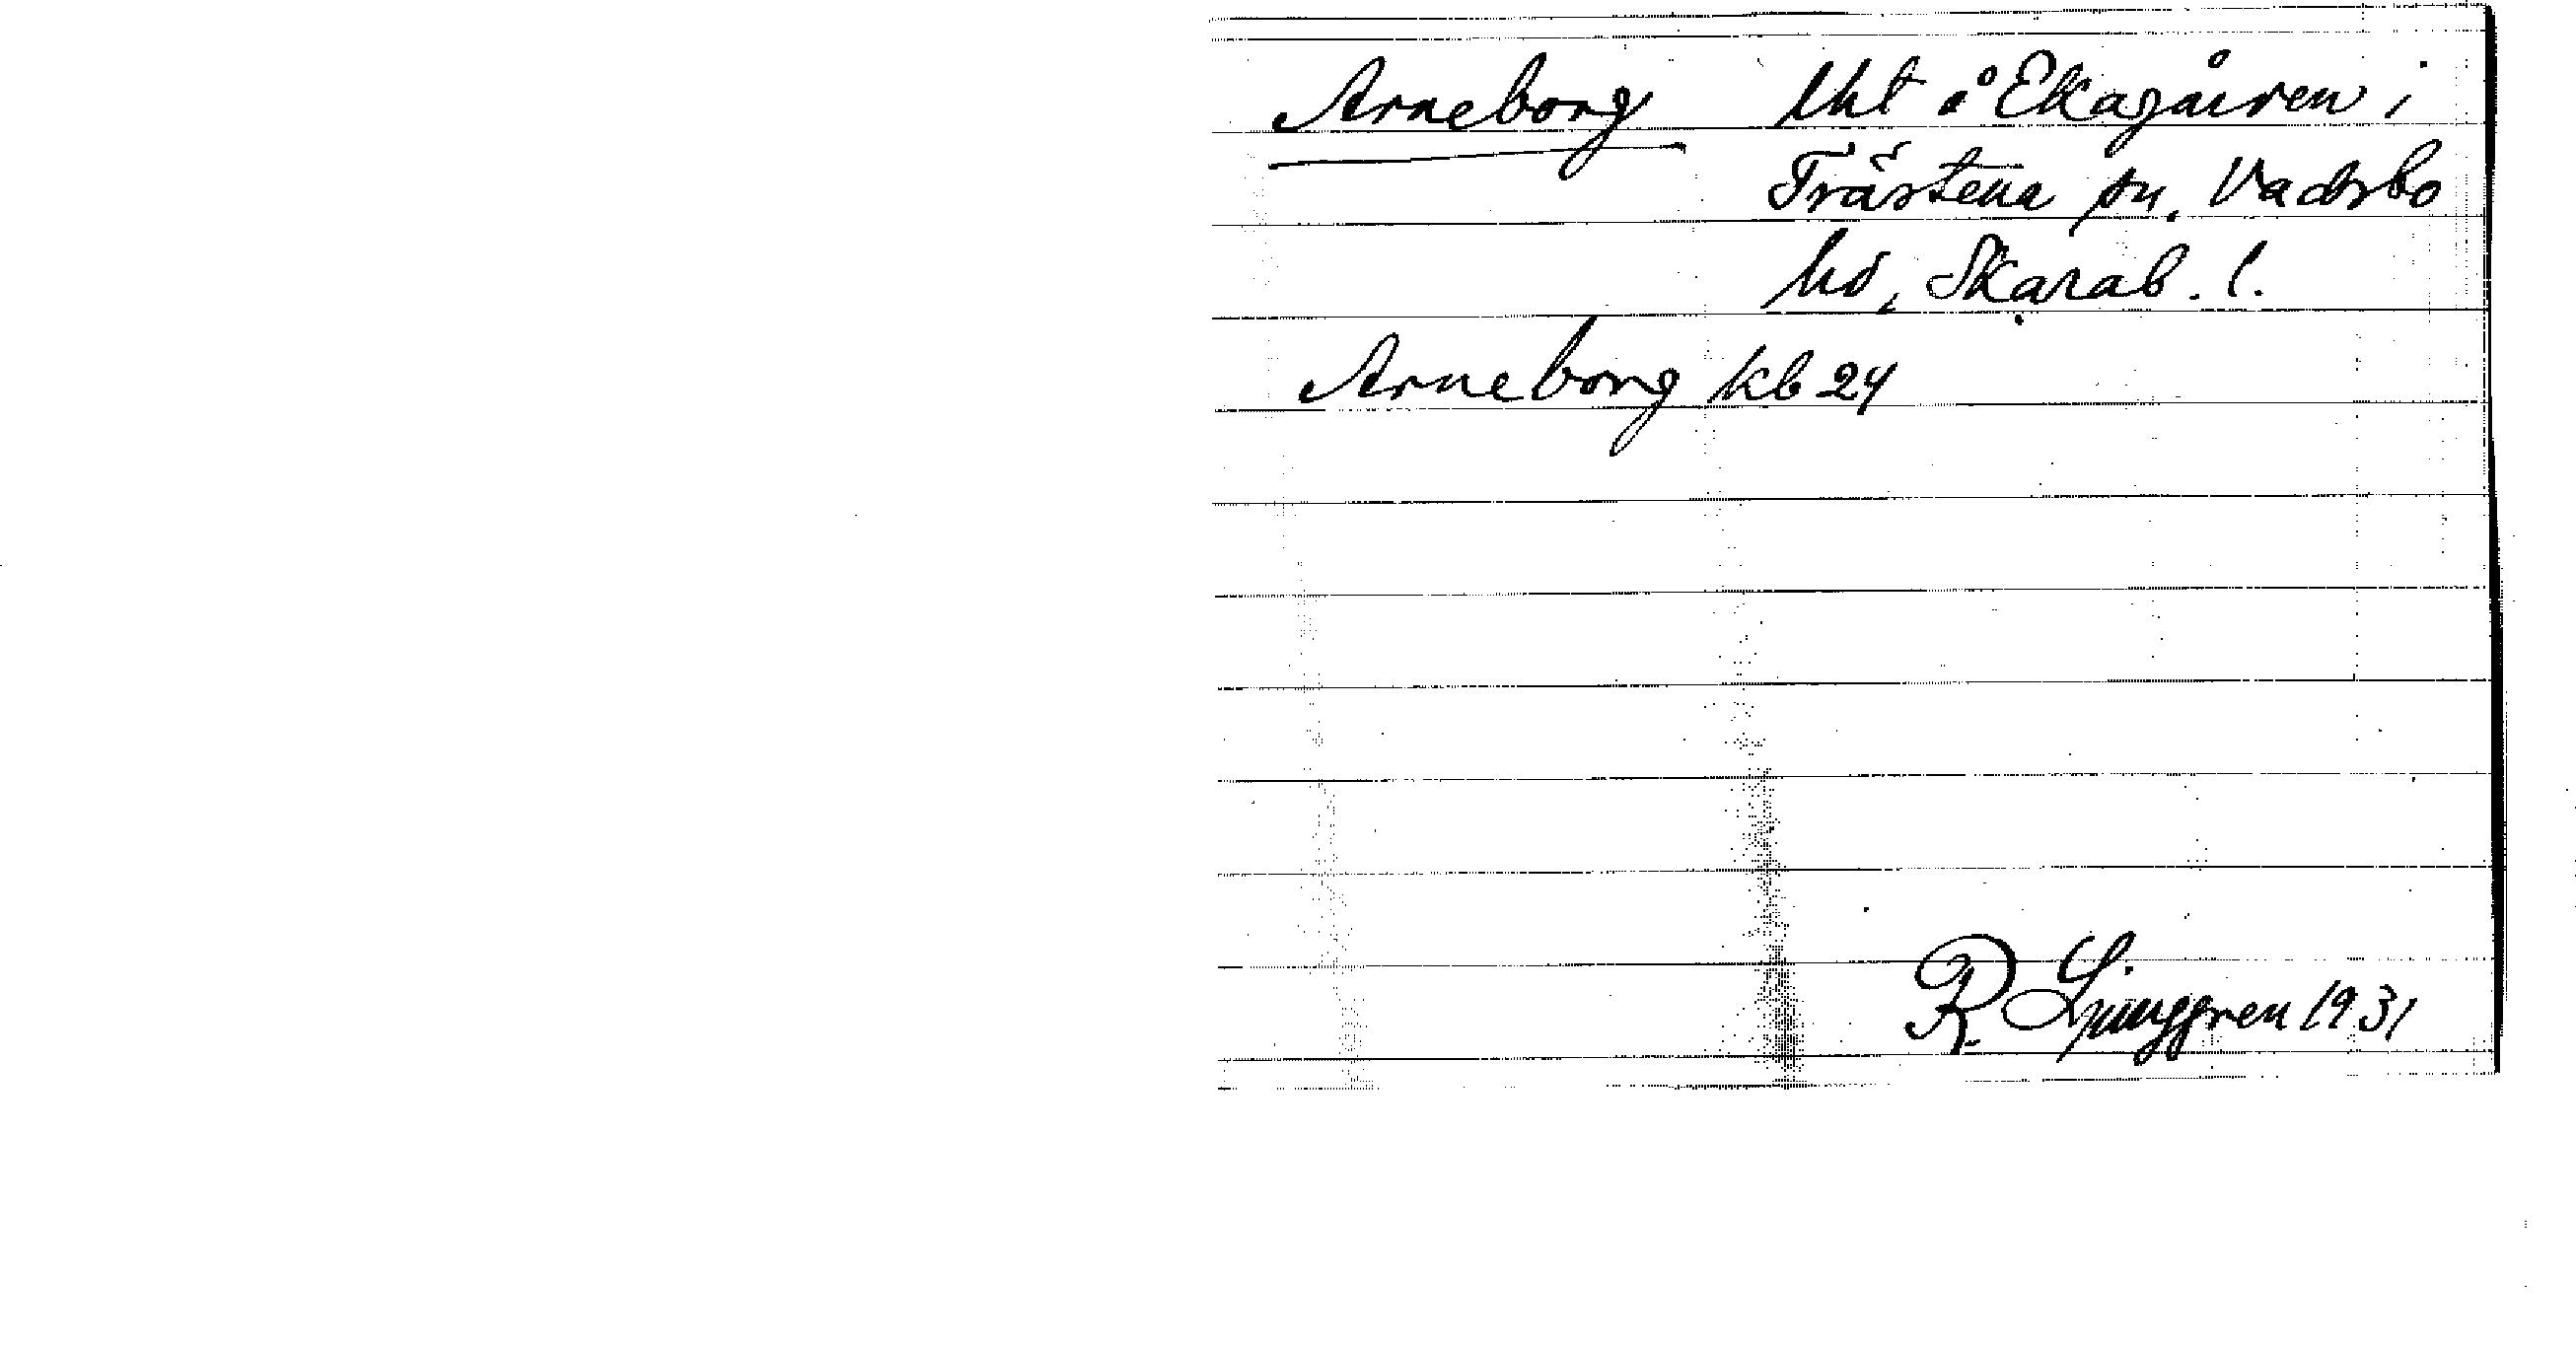 Arneborg lht å Ekagården i
Trästena sn. Vadsbo
hd, Skarab. l.
Arneborg kb 24
R Ljunggren 1931